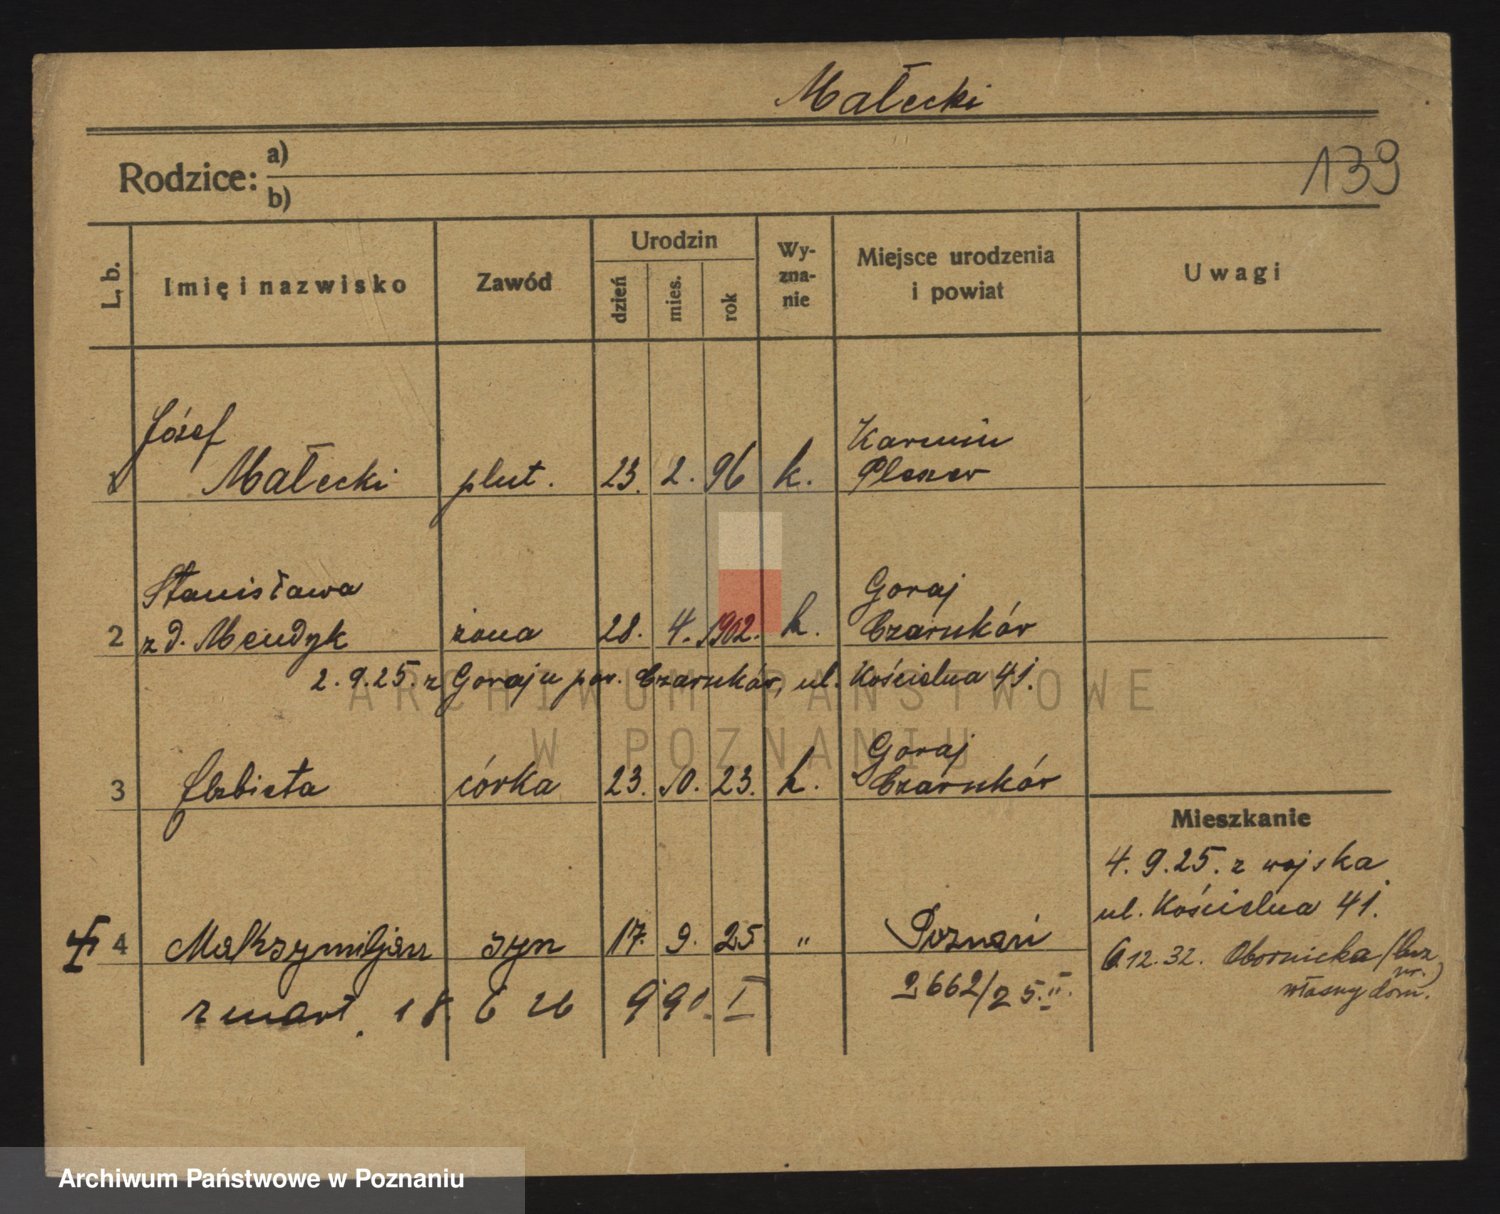 Małecki
139
Rodzice: a)
b)
L. b.
Imię i nazwisko
Zawód
Urodzin
dzień
mies.
rok
Wy-
zna-
nie
Miejsce urodzenia
i powiat
Uwagi
Józef
Małecki
1
plut. 23. 2. 96 k.
Karmin
Pleszew
Stanisława
2 z d. Mendyk żona 28. 4. 1902. k.
Goraj
Czarnków
2. 9. 25. z Goraju pow. Czarnków, ul. Kościelna 41.
3 Elżbieta córka 23. 10. 23. k.
Goraj
Czarnków
Mieszkanie
4. 9. 25. z wojska
ul. Kościelna 41.
6.12.32. Obornicka (bez
nr.)
własny dom.
4 Maksymiljan syn 17. 9. 25. " Poznań
2662/25.II.
zmarł. 18. 6 26 990. I
ARCHIWUM PAŃSTWOWE
W POZNANIU
Archiwum Państwowe w Poznaniu